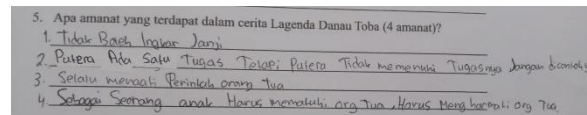 5. Apa amanat yang terdapat dalam cerita Lagenda Danau Toba (4 amanat)?
1. Tidak Boeh Ingkar Janji
2. Putera Ada Satu Tugas Tetapi Putera Tidak memenuhi Tugasnya Jangan dicontoh
3. Selalu menaati Perintah orang tua
4. Sebagai Seorang anak Harus mematuhi org Tua, Harus Menghormati org Tua